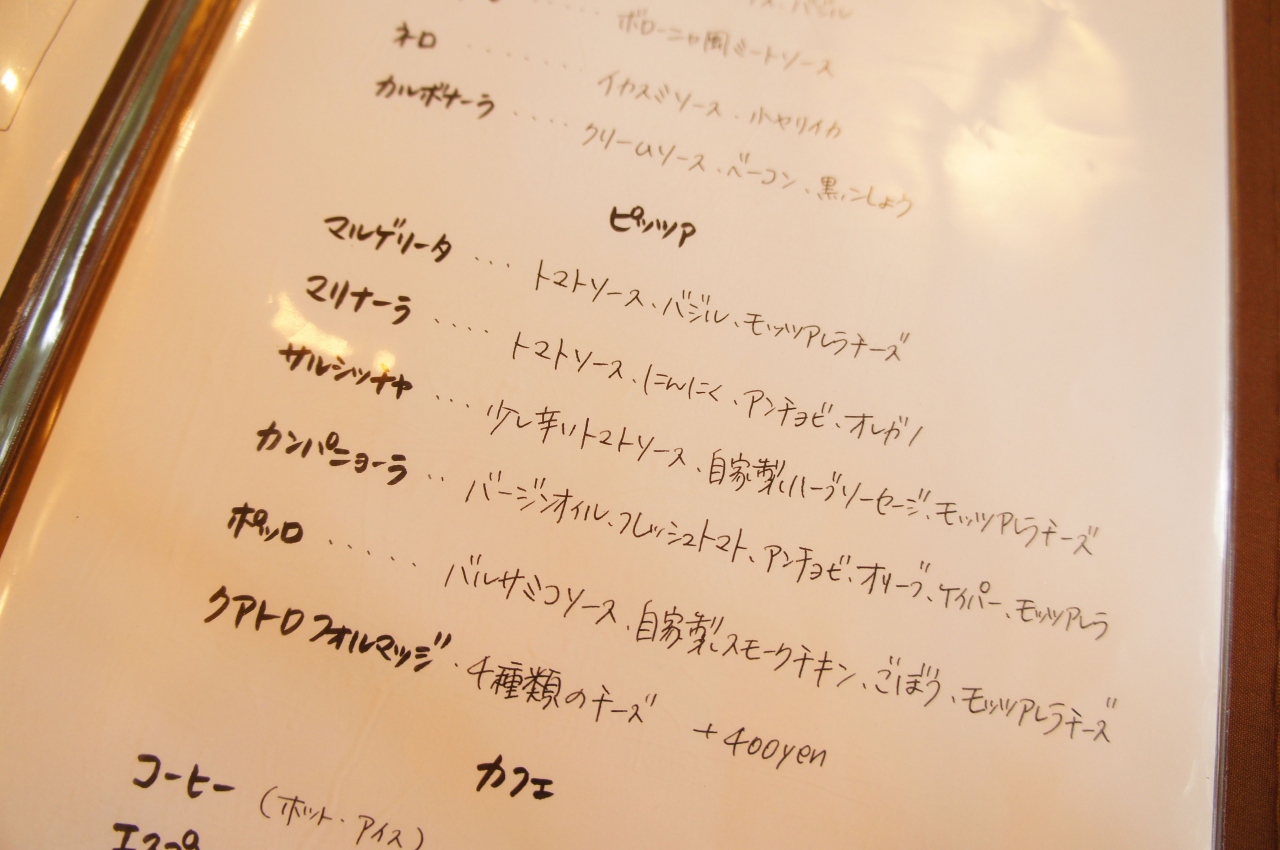 ス、バジル
ボローニャ風ミートソース
ネロ ...... イカスミソース、小ヤリイカ
カルボナーラ .... クリームソース、ベーコン、黒こしょう
ピッツァ
マルゲリータ ... トマトソース、バジル、モッツアレラチーズ
マリナーラ .... トマトソース、にんにく、アンチョビ、オレガノ
サルシッチャ ... 少し辛いトマトソース、自家製ハーブソーセージ、モッツアレラチーズ
カンパニョーラ .. バージンオイル、フレッシュトマト、アンチョビ、オリーブ、ケイパー、モッツアレラ
ポッロ ..... バルサミコソース、自家製スモークチキン、ごぼう、モッツアレラチーズ
クアトロフォルマッジ . 4種類のチーズ +400yen
カフェ
コーヒー (ホット・アイス)
エスプ